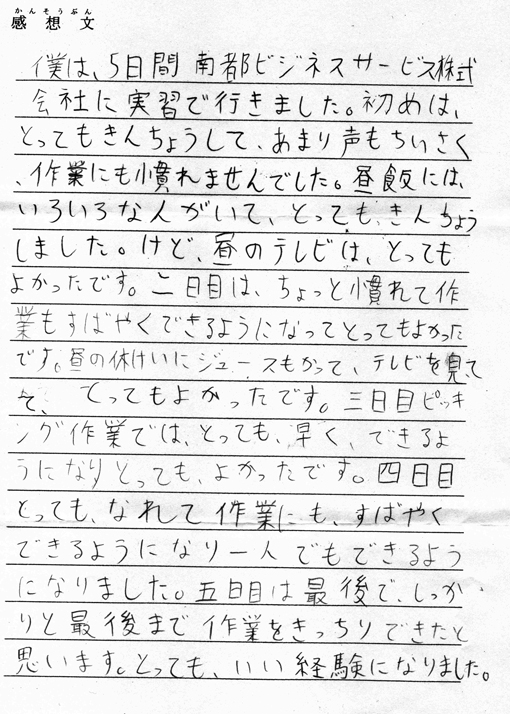 かんそうぶん
感想文
僕は、5日間南都ビジネスサービス株式
会社に実習で行きました。初めは、
とってもきんちょうして、あまり声もちいさく
、作業にも慣れませんでした。昼飯には、
いろいろな人がいて、とっても、きんちょう
しました。けど、昼のテレビは、とっても
よかったです。二日目は、ちょっと慣れて作
業もすばやくできるようになってとってもよかった
です。昼の休けいにジュースもかって、テレビを見て
て、とってもよかったです。三日目ピッキ
ング作業では、とっても、早く、できるよ
うになりとっても、よかったです。四日目
とっても、なれて作業にも、すばやく
できるようになり一人でもできるよう
になりました。五日目は最後で、しっか
りと最後まで作業をきっちりできたと
思います。とっても、いい経験になりました。